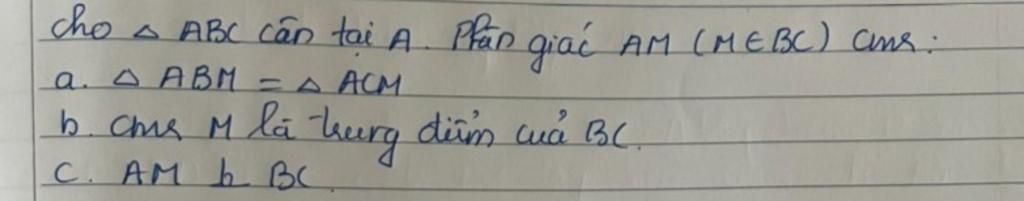 cho △ ABC cân tại A. Phân giác AM (M∈BC) cmr:
a. △ ABM = △ ACM
b. cmr M là trung điểm của BC.
c. AM ⊥ BC.